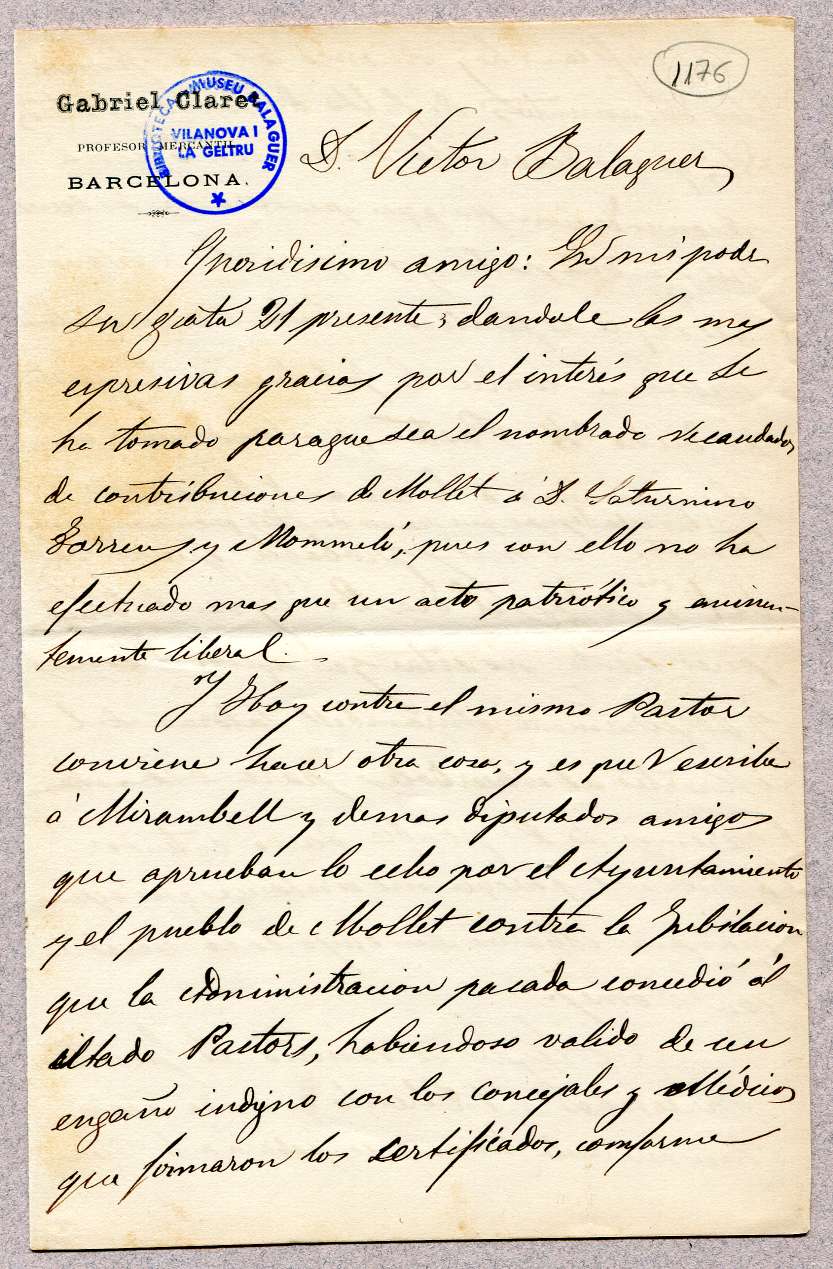 1176
Gabriel Claret
PROFESOR MERCANTIL
BARCELONA.
BIBLIOTECA MUSEU BALAGUER
VILANOVA I
LA GELTRU
D. Victor Balaguer
Queridisimo amigo: En mi poder
su grata 21 presente, dandole las mas
expresivas gracias por el interés que se
ha tomado para que sea el nombrado recaudador
de contribuciones de Mollet á D. Saturnino
Torrens y Mommeló, pues con ello no ha
efectuado mas que un acto patriótico y eminen-
temente liberal.
Hoy contre el mismo Pastor
conviene hacer otra cosa, y es que V escriba
á Mirambell y demas diputados amigos
que aprueban lo echo por el Ayuntamiento
y el pueblo de Mollet contra la Jubilacion
que la Administracion pasada concedió ál
citado Pastors, habiendose valido de un
engaño indigno con los Concejales y Médicos
que firmaron los Certificados, conforme